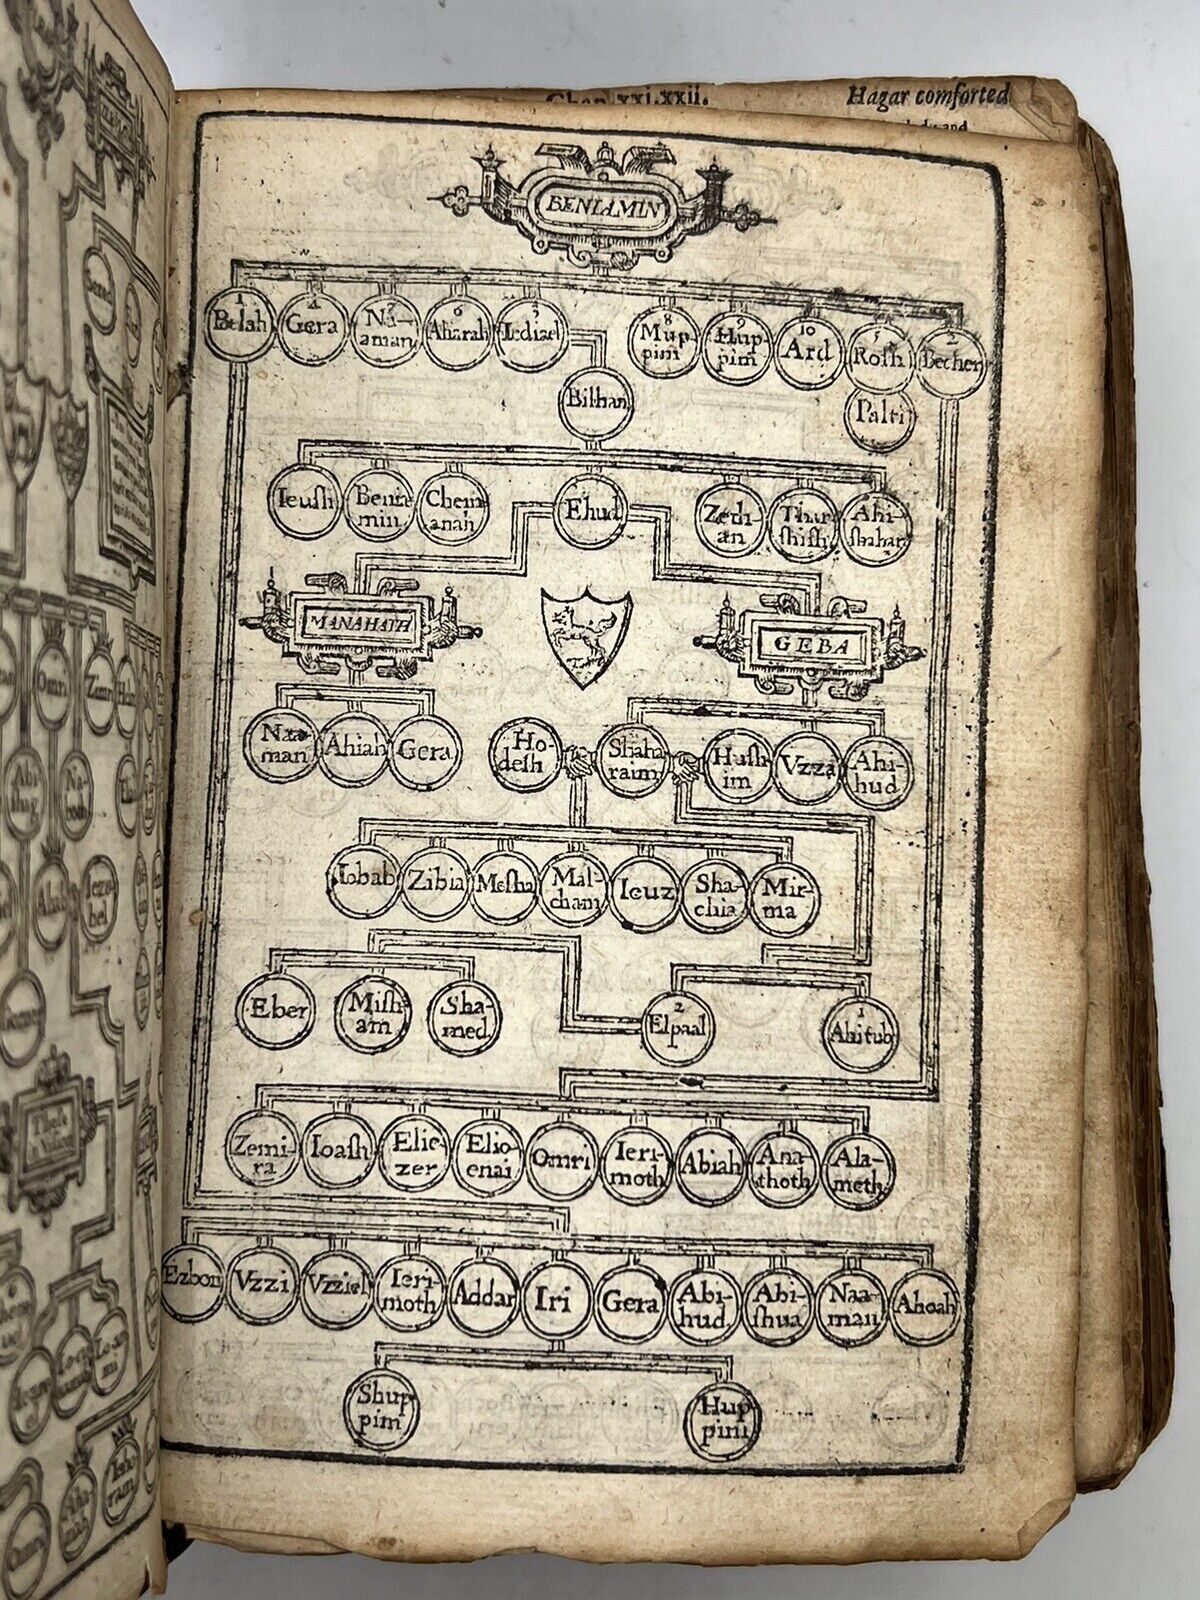 Chap. xxi. xxii.
Hagar comforted
BENIAMIN
1 Belah
4 Gera
Na-
aman
6 Aharah
3 Iediael
8 Mup
pim
9 Hup
pim
10 Ard
5 Rosh
2 Becher
Bilhan
Palti
Ieush
Benia
min
Chen
anah
Ehud
Zeth
an
Thar
shish
Ahi-
shahar
MANAHATH
GEBA
Naa-
man
Ahiah
Gera
Ho-
desh
Shaha
raim
Hush
im
Vzza
Ahi-
hud
Iobab
Zibia
Mesha
Mal-
cham
Ieuz
Sha-
chia
Mir-
ma
Eber
Mish
am
Sha-
med.
2 Elpaal
1 Ahitub
Zemi-
ra
Ioash
Elie-
zer
Elio-
enai
Omri
Ieri-
moth
Abiah
Ana-
thoth
Ala-
meth
Ezbon
Vzzi
Vzziel
Ieri-
moth
Addar
Iri
Gera
Abi-
hud
Abi-
shua
Naa-
man
Ahoah
Shup
pim
Hup-
pim
Omri
Zimri
Ahab
Ieze
bel